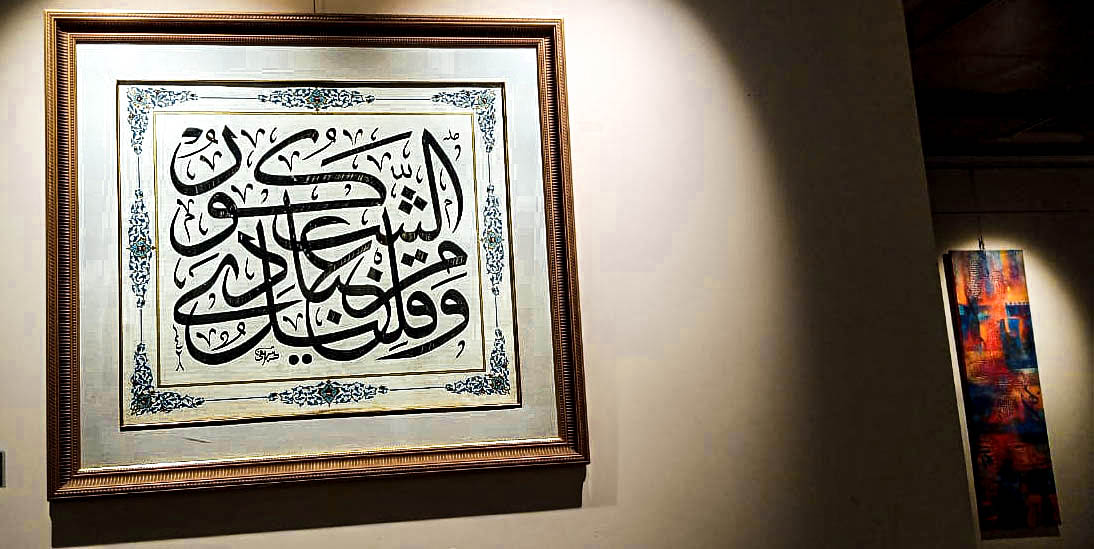 وقليل من عبادي الشكور